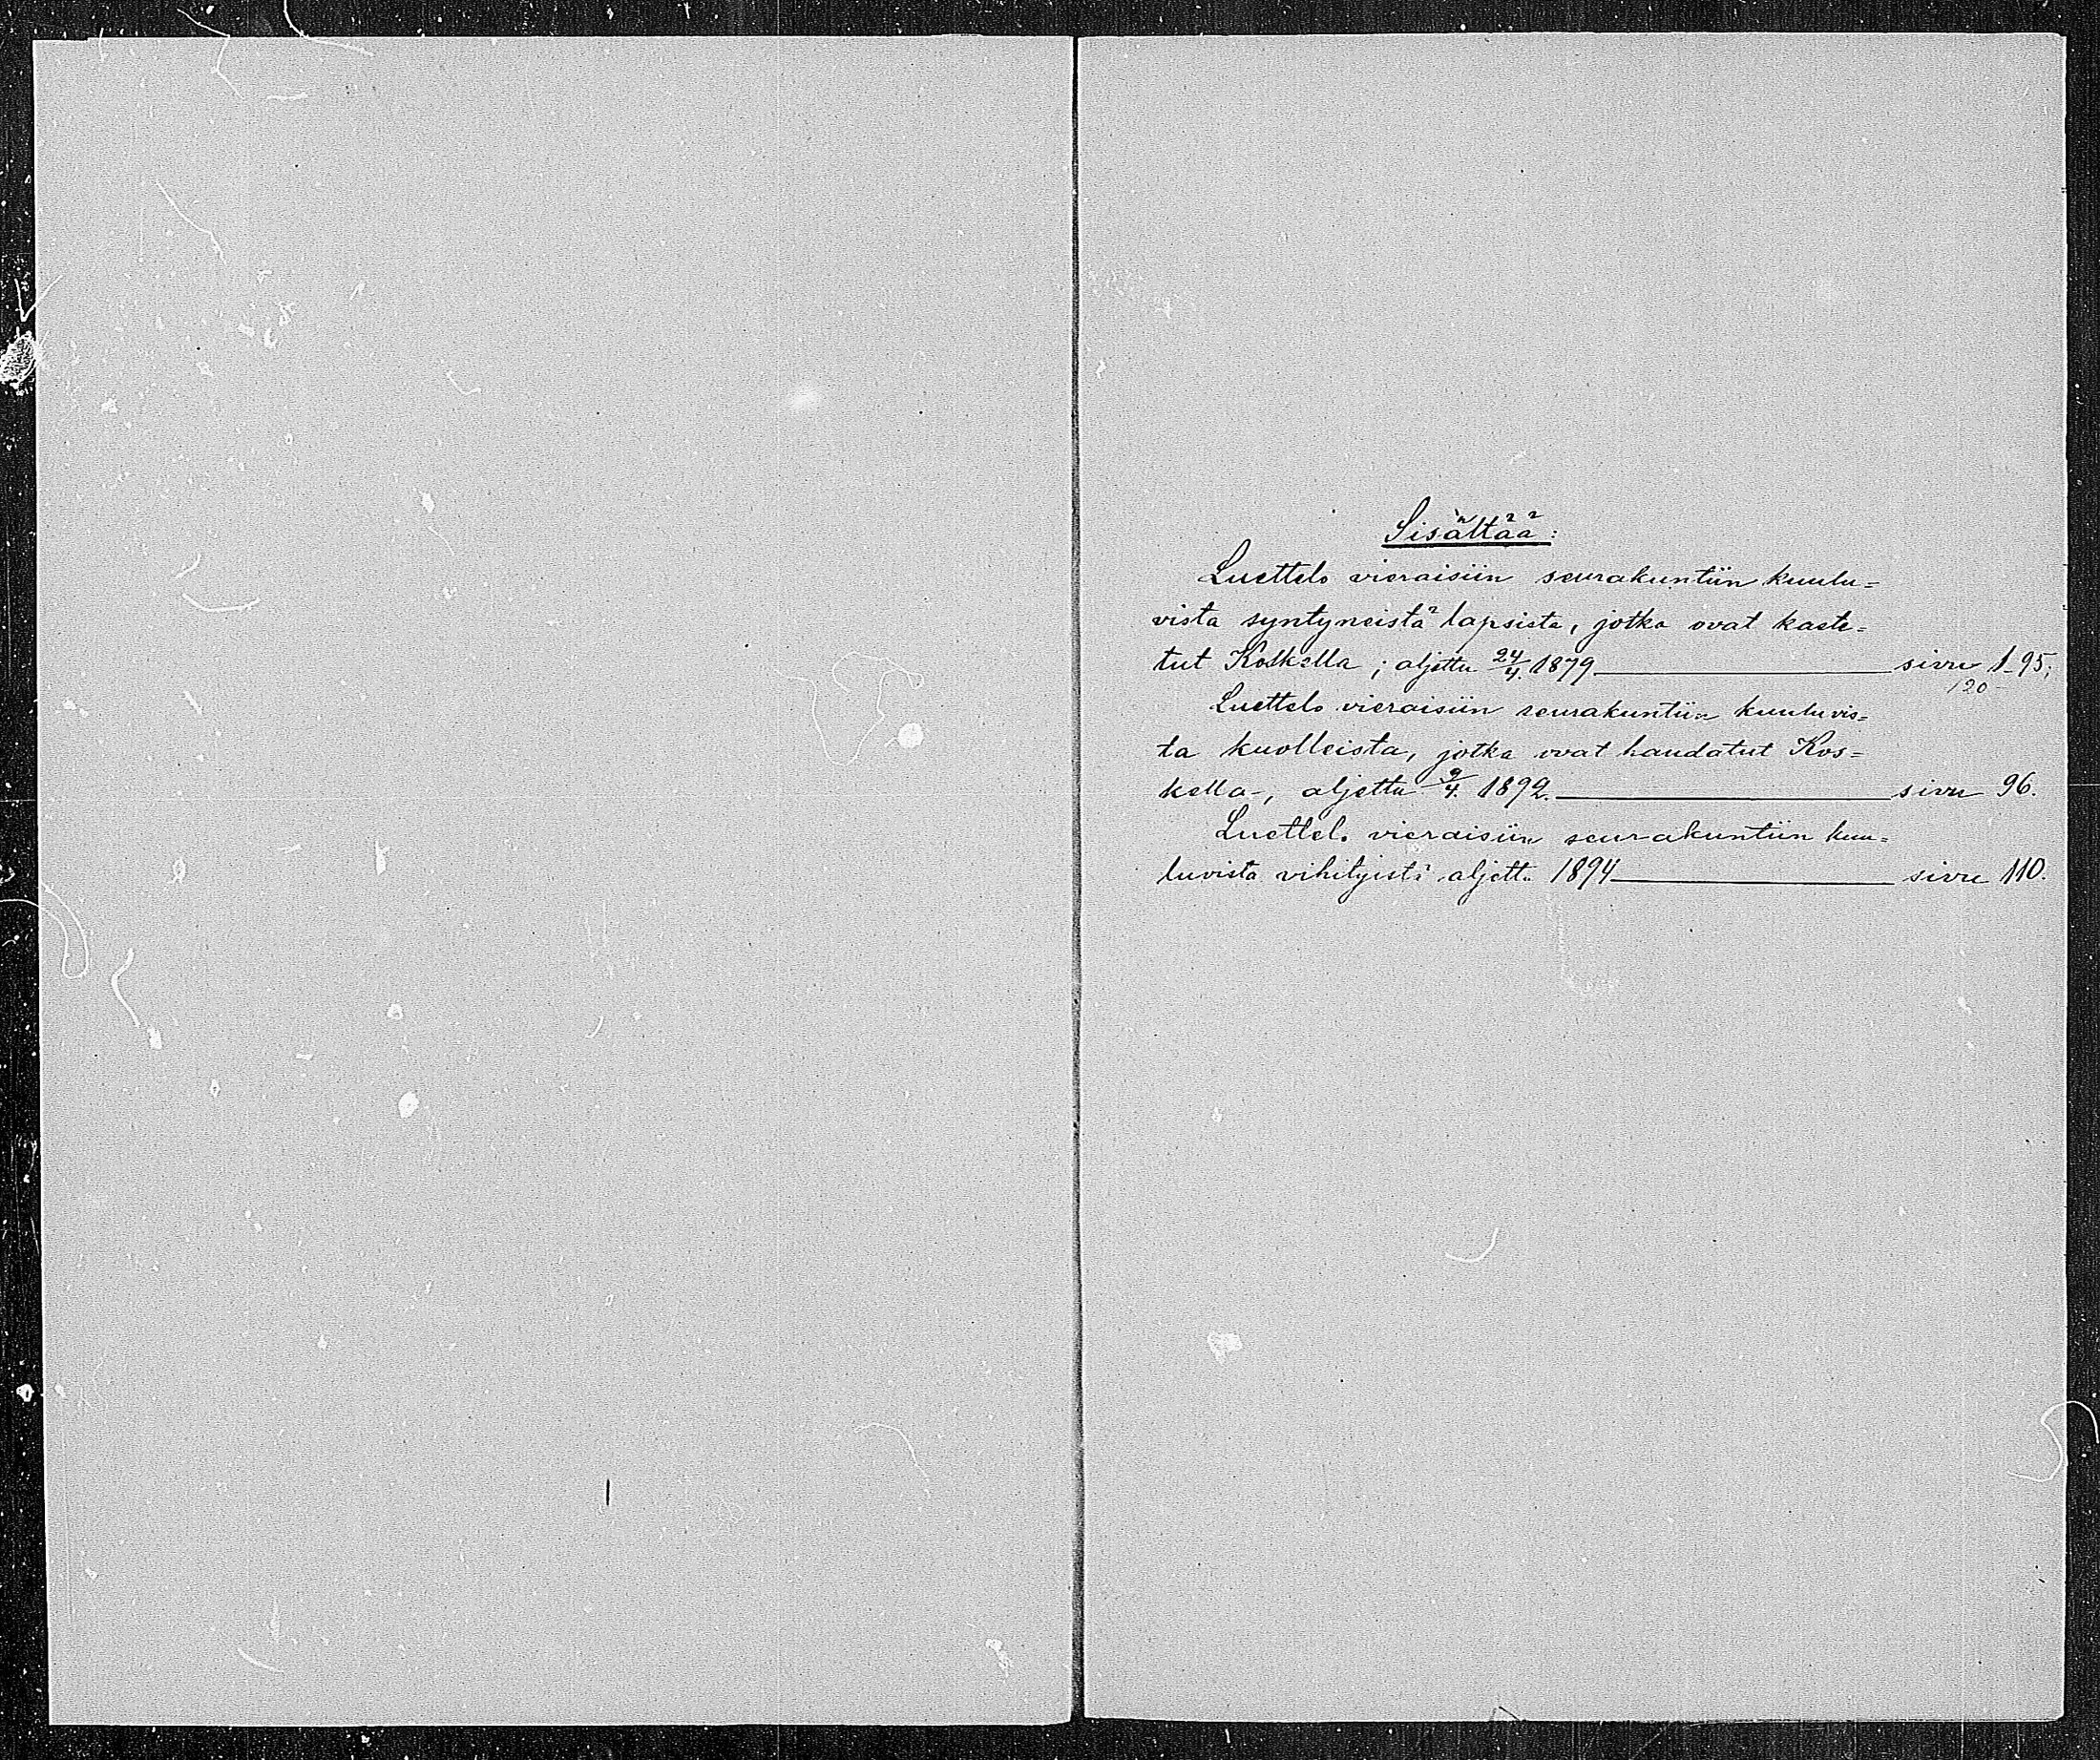 Sisältää:
Luettelo vieraisiin seurakuntiin kuulu=
vista syntyneistä lapsista, jotka ovat kaste=
tut Koskella; aljettu 24/4. 1879 sivu 1-95;
120-
Luettelo vieraisiin seurakuntiin kuuluvis=
ta kuolleista, jotka ovat haudatut Kos=
kella-, aljettu 9/4. 1892. sivu 96.
Luettelo vieraisiin seurakuntiin kuu=
luvista vihityistä aljettu 1894 sivu 110.